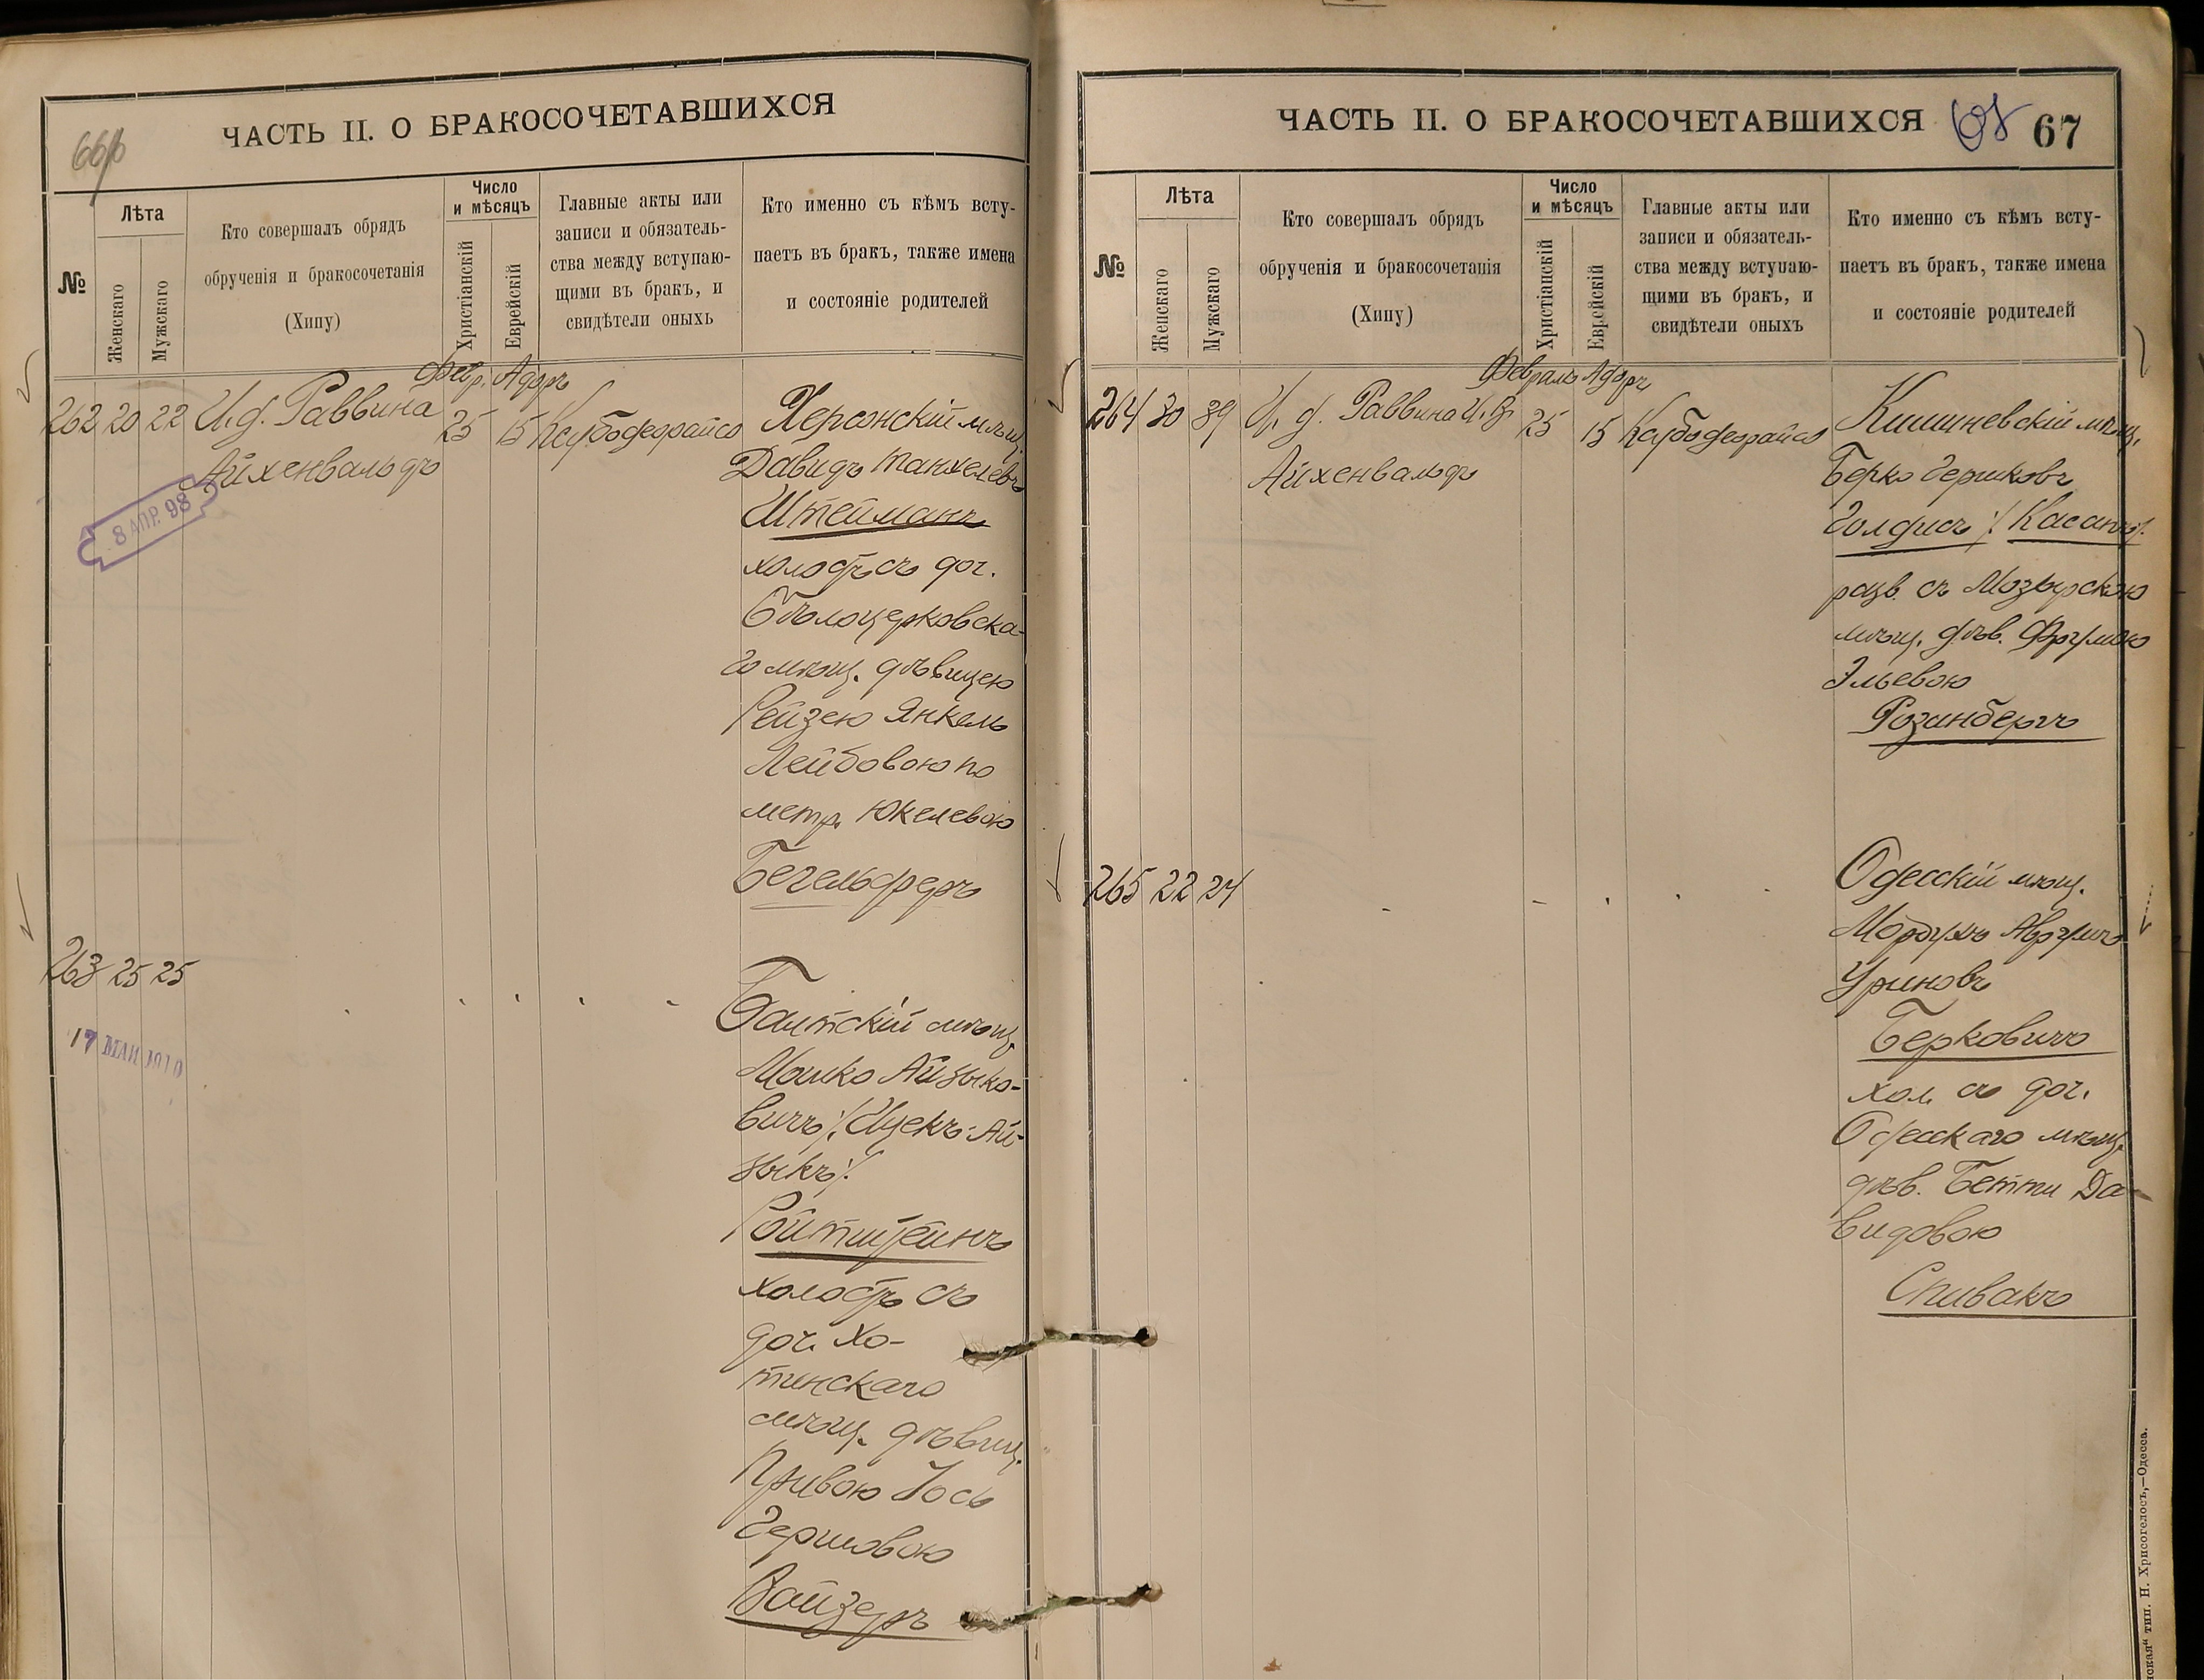 66об
ЧАСТЬ II. О БРАКОСОЧЕТАВШИХСЯ
№
Лѣта
Женскаго
Мужскаго
Кто совершалъ обрядъ
обрученія и бракосочетанія
(Хипу)
Число
и мѣсяцъ
Христіанскій
Еврейскій
Главные акты или
записи и обязатель-
ства между вступаю-
щими въ бракъ, и
свидѣтели оныхъ
Кто именно съ кѣмъ всту-
паетъ въ бракъ, также имена
и состояніе родителей
Февр. Адаръ
262 20 22 И.д. Раввина 25 15
Айхенвальдъ
8 АПР. 98
Херсонскій мѣщ.
Давидъ Танхелевъ
Штейманъ
холостъ съ доч.
Бѣлоцерковска-
го мѣщ. дѣвицею
Рейзею Янкель
Лейбовою по
метр. Юкелевою
Бегельферъ
263 25 25
17 МАЙ 1910
Балтскій мѣщ.
Мошко Айзыко-
вичъ /:Ицекъ-Ай-
зыкъ:/
Ройтштейнъ
холостъ съ
доч. Хо-
тинскаго
мѣщ. дѣвиц.
Привою Іось
Гершовою
Вайзеръ
ЧАСТЬ II. О БРАКОСОЧЕТАВШИХСЯ
67
№
Лѣта
Женскаго
Мужскаго
Кто совершалъ обрядъ
обрученія и бракосочетанія
(Хипу)
Число
и мѣсяцъ
Христіанскій
Еврейскій
Главные акты или
записи и обязатель-
ства между вступаю-
щими въ бракъ, и
свидѣтели оныхъ
Кто именно съ кѣмъ всту-
паетъ въ бракъ, также имена
и состояніе родителей
Февраль Адаръ
264 30 39 И. д. Раввина 25 15
Айхенвальдъ
Кишиневскій мѣщ.
Берко Гершковъ
Голдисъ /:Касанъ:/
разв. съ Мозырскою
мѣщ. дѣв. Фрумою
Эльевою
Розинбергъ
265 22 24
Одесскій мѣщ.
Мордухъ Аврумъ
Уриновъ
Берковичъ
хол. съ доч.
Одесскаго мѣщ.
дѣв. Бетти Да-
видовою
Спивакъ
тип. Н. Хрисогелосъ,—Одесса.